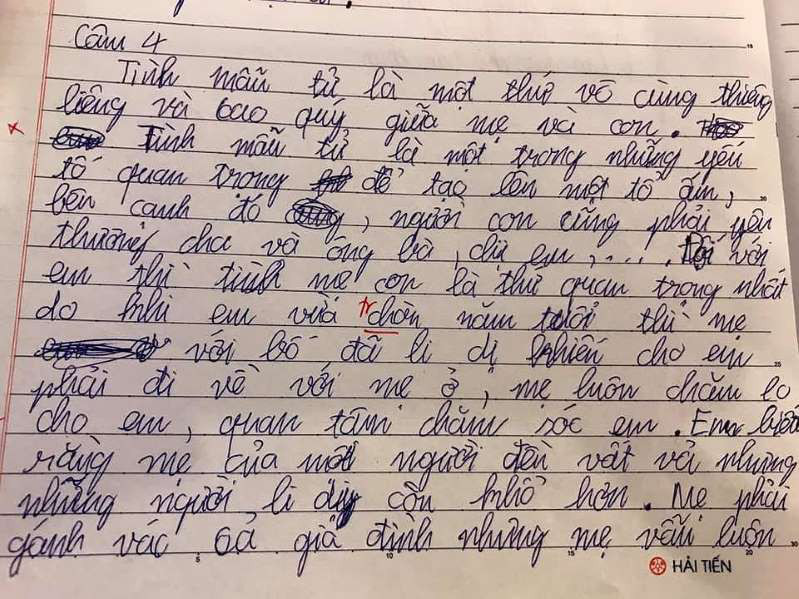 Câu 4
Tình mẫu tử là một thứ vô cùng thiêng
liêng và bao quý giữa mẹ và con.
Tình mẫu tử là một trong những yếu
tố quan trong để tạo lên một tổ ấm,
bên cạnh đó, người con cũng phải yêu
thương cha và ông bà, chị em,.... Đối với
em thì tình mẹ con là thứ quan trọng nhất
do khi em vừa tr chòn năm tuổi thì mẹ
với bố đã li dị khiến cho em
phải đi về với mẹ ở, mẹ luôn chăm lo
cho em, quan tâm chăm sóc em. Em
rằng mẹ của mỗi người đều vất vả nhưng
những người li dị còn khổ hơn. Mẹ phải
gánh vác cả gia đình nhưng mẹ vẫn luôn
HẢI TIẾN